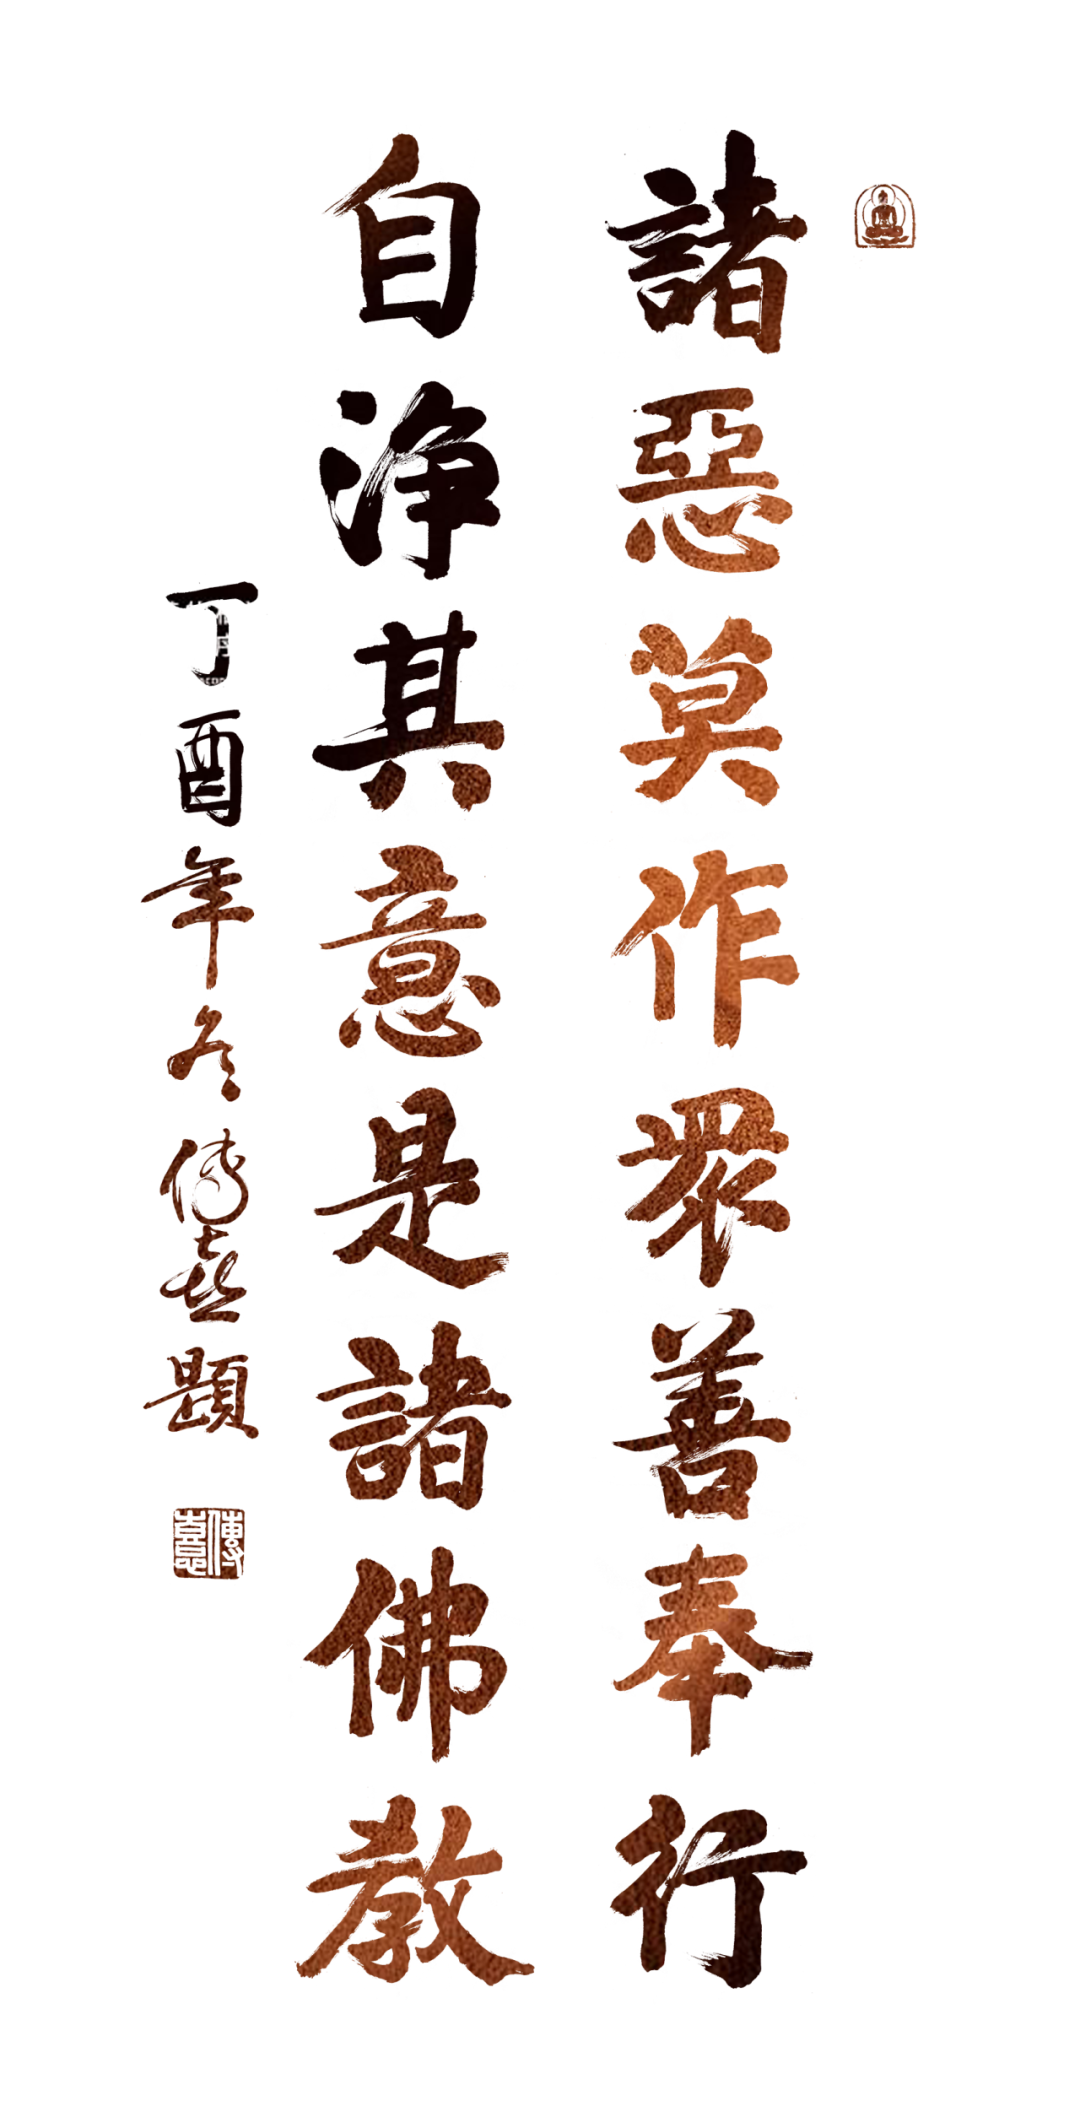 諸惡莫作衆善奉行
自淨其意是諸佛教
丁酉年冬傳喜題
傳喜